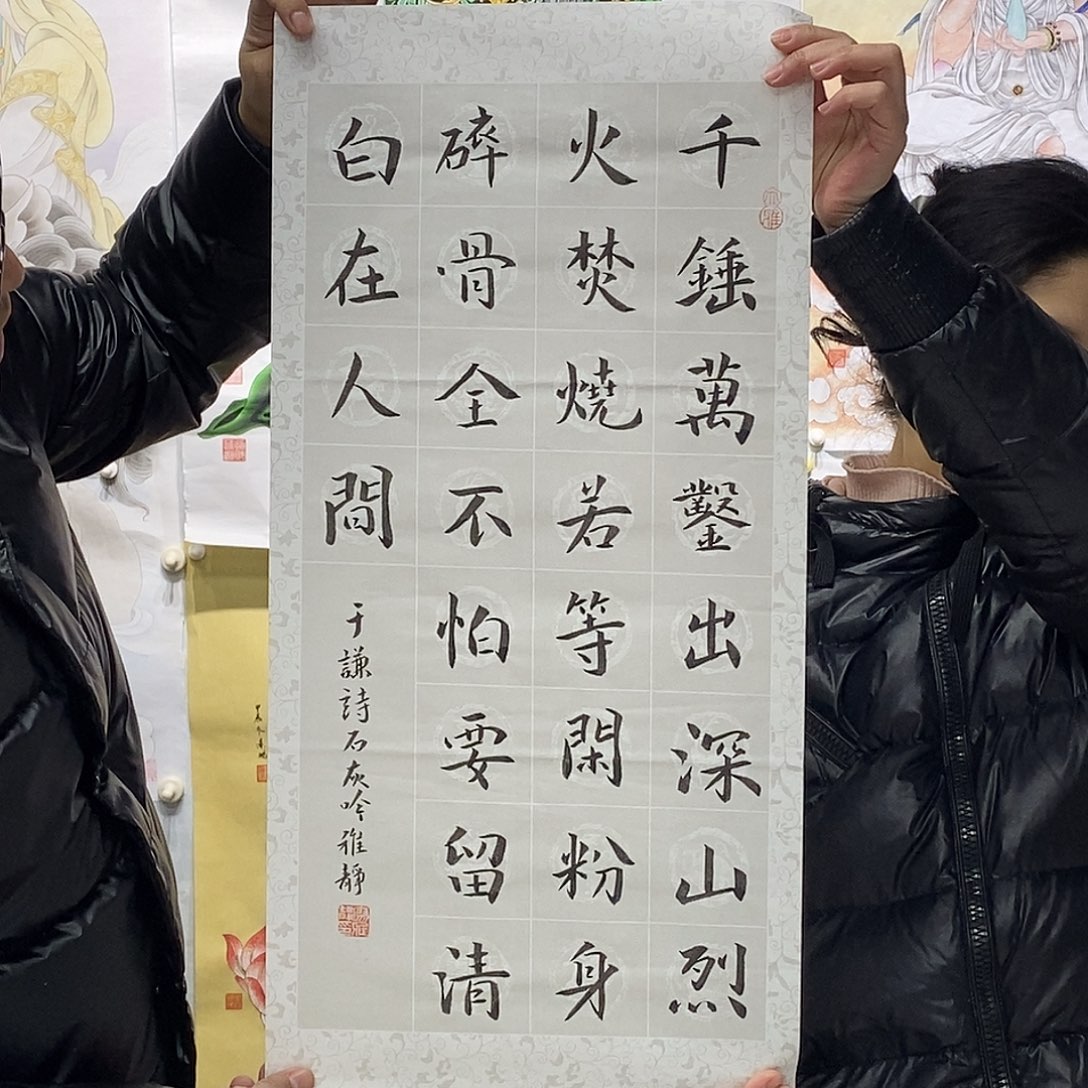 千錘萬鑿出深山烈
火焚燒若等閑粉身
碎骨全不怕要留清
白在人間
于謙詩石灰吟雅靜